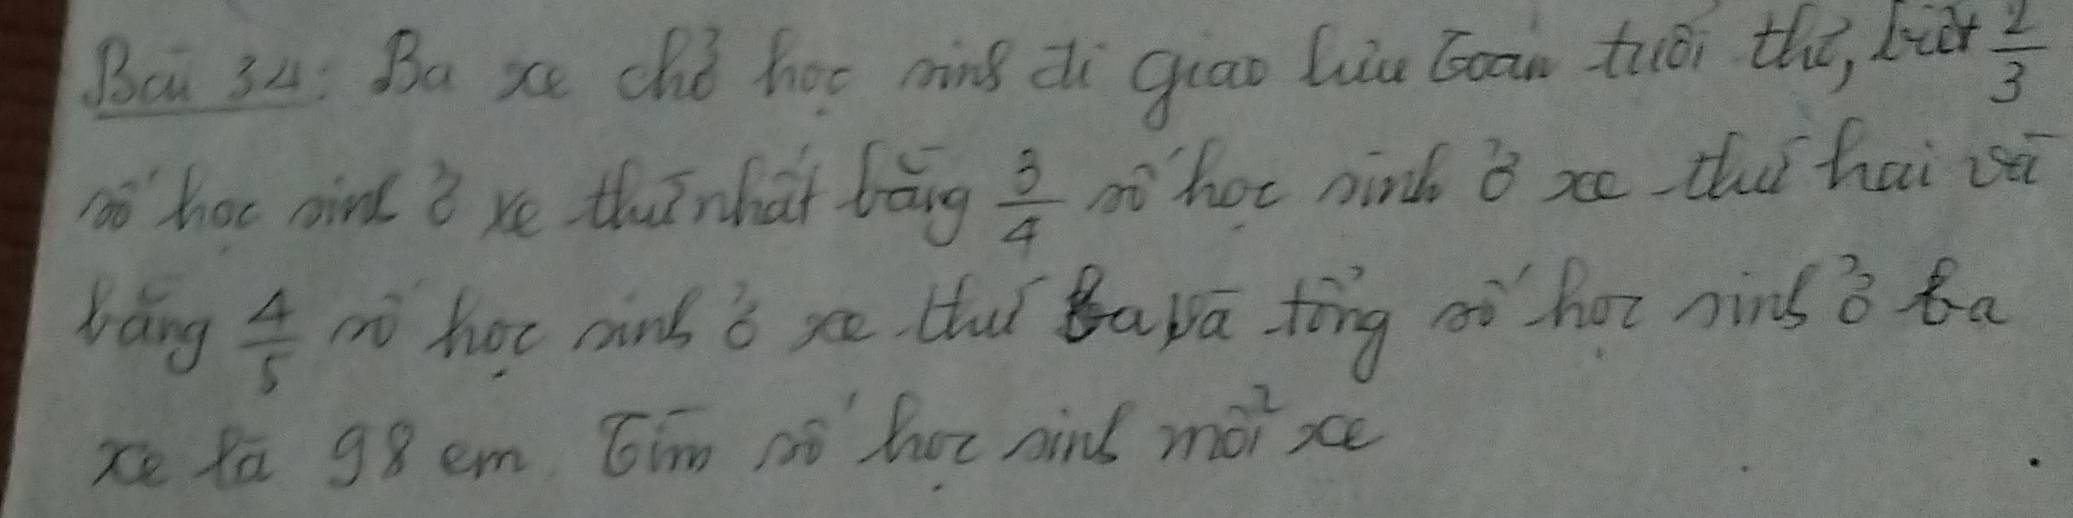 Bài 34: Ba xe chở học sinh đi giao lưu Toán tuổi thơ, biết 2/3
số học sinh ở xe thứ nhất bằng 3/4 số học sinh ở xe thứ hai và
bằng 4/5 số học sinh ở xe thứ ba và tổng số học sinh ở ba
xe là 98 em. Tìm số học sinh mỗi xe